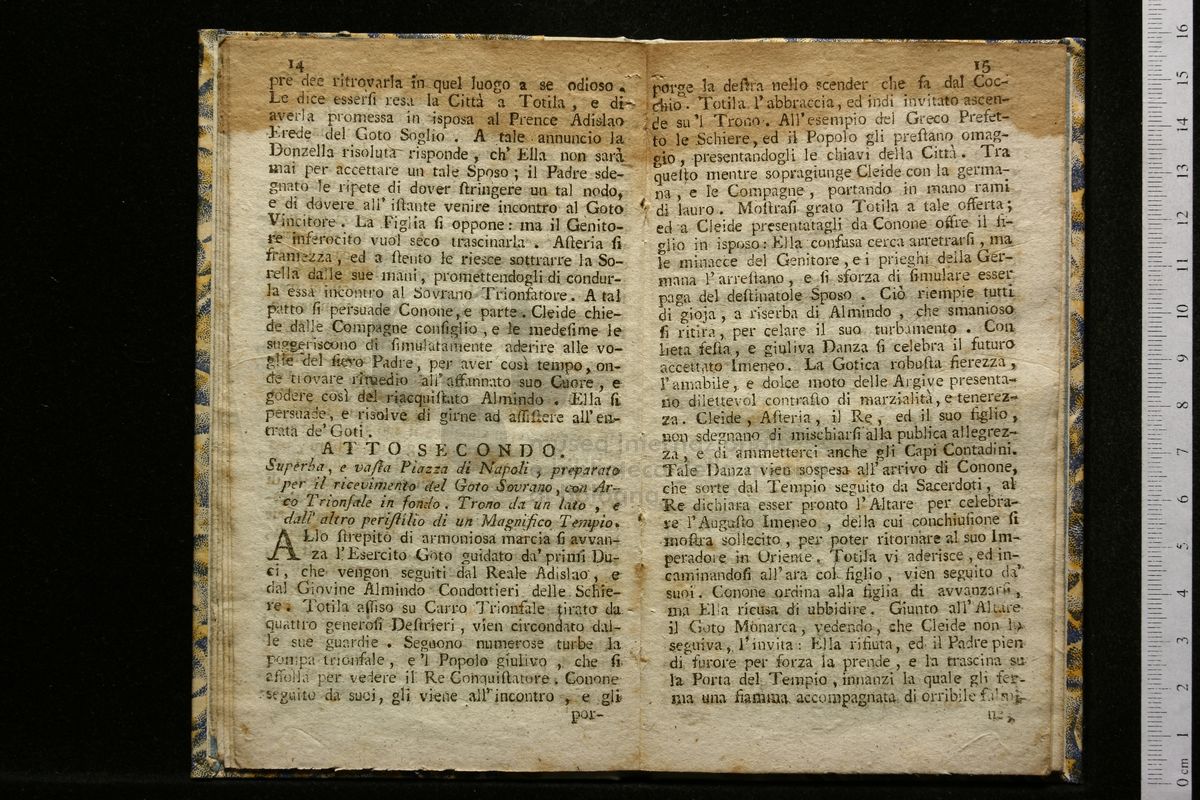 14
pre dee ritrovarla in quel luogo a se odioso.
Le dice essersi resa la Città a Totila, e di
averla promessa in isposa al Prence Adislao
Erede del Goto Soglio. A tale annuncio la
Donzella risoluta risponde, ch' Ella non sarà
mai per accettare un tale Sposo; il Padre sde-
gnato le ripete di dover stringere un tal nodo,
e di dovere all' istante venire incontro al Goto
Vincitore. La Figlia si oppone: ma il Genito-
re inferocito vuol seco trascinarla. Asteria si
framezza, ed a stento le riesce sottrarre la So-
rella dalle sue mani, promettendogli di condur-
la essa incontro al Sovrano Trionfatore. A tal
patto si persuade Conone, e parte. Cleide chie-
de dalle Compagne consiglio, e le medesime le
suggeriscono di simulatamente aderire alle vo-
glie del fiero Padre, per aver così tempo, on-
de trovare rimedio all' affannato suo Cuore, e
godere così del riacquistato Almindo. Ella si
persuade, e risolve di girne ad assistere all' en-
trata de' Goti.
ATTO SECONDO.
Superba, e vasta Piazza di Napoli, preparato
per il ricevimento del Goto Sovrano, con Ar-
co Trionfale in fondo. Trono da un lato, e
dall' altro peristilio di un Magnifico Tempio.
ALlo strepito di armoniosa marcia si avvan-
za l'Esercito Goto guidato da' primi Du-
ci, che vengon seguiti dal Reale Adislao, e
dal Giovine Almindo Condottieri delle Schie-
re. Totila assiso su Carro Trionfale tirato da
quattro generosi Destrieri, vien circondato dal-
le sue guardie. Seguono numerose turbe la
pompa trionfale, e 'l Popolo giulivo, che si
affolla per vedere il Re Conquistatore. Conone
seguito da suoi, gli viene all' incontro, e gli
por-
15
porge la destra nello scender che fa dal Coc-
chio. Totila l'abbraccia, ed indi invitato ascen-
de su 'l Trono. All' esempio del Greco Prefet-
to le Schiere, ed il Popolo gli prestano omag-
gio, presentandogli le chiavi della Città. Tra
questo mentre sopragiunge Cleide con la germa-
na, e le Compagne, portando in mano rami
di lauro. Mostrasi grato Totila a tale offerta;
ed a Cleide presentatagli da Conone offre il fi-
glio in isposo: Ella confusa cerca arretrarsi, ma
le minacce del Genitore, e i prieghi della Ger-
mana l'arrestano, e si sforza di simulare esser
paga del destinatole Sposo. Ciò riempie tutti
di gioja, a riserba di Almindo, che smanioso
si ritira, per celare il suo turbamento. Con
lieta festa, e giuliva Danza si celebra il futuro
accettato Imeneo. La Gotica robusta fierezza,
l'amabile, e dolce moto delle Argive presenta-
no dilettevol contrasto di marzialità, e tenerez-
za. Cleide, Asteria, il Re, ed il suo figlio,
non sdegnano di mischiarsi alla publica allegrez-
za, e di ammetterci anche gli Capi Contadini.
Tale Danza vien sospesa all' arrivo di Conone,
che sorte dal Tempio seguito da Sacerdoti, al
Re dichiara esser pronto l'Altare per celebra-
re l'Augusto Imeneo, della cui conchiusione si
mostra sollecito, per poter ritornare al suo Im-
peradore in Oriente. Totila vi aderisce, ed in-
caminandosi all' ara col figlio, vien seguito da'
suoi. Conone ordina alla figlia di avvanzarsi,
ma Ella ricusa di ubbidire. Giunto all' Altare
il Goto Monarca, vedendo, che Cleide non lo
seguiva, l'invita: Ella rifiuta, ed il Padre pien
di furore per forza la prende, e la trascina su
la Porta del Tempio, innanzi la quale gli fer-
ma una fiamma accompagnata di orribile fulmi-
ne,
16
15
14
13
12
11
10
9
8
7
6
5
4
3
2
1
0 cm